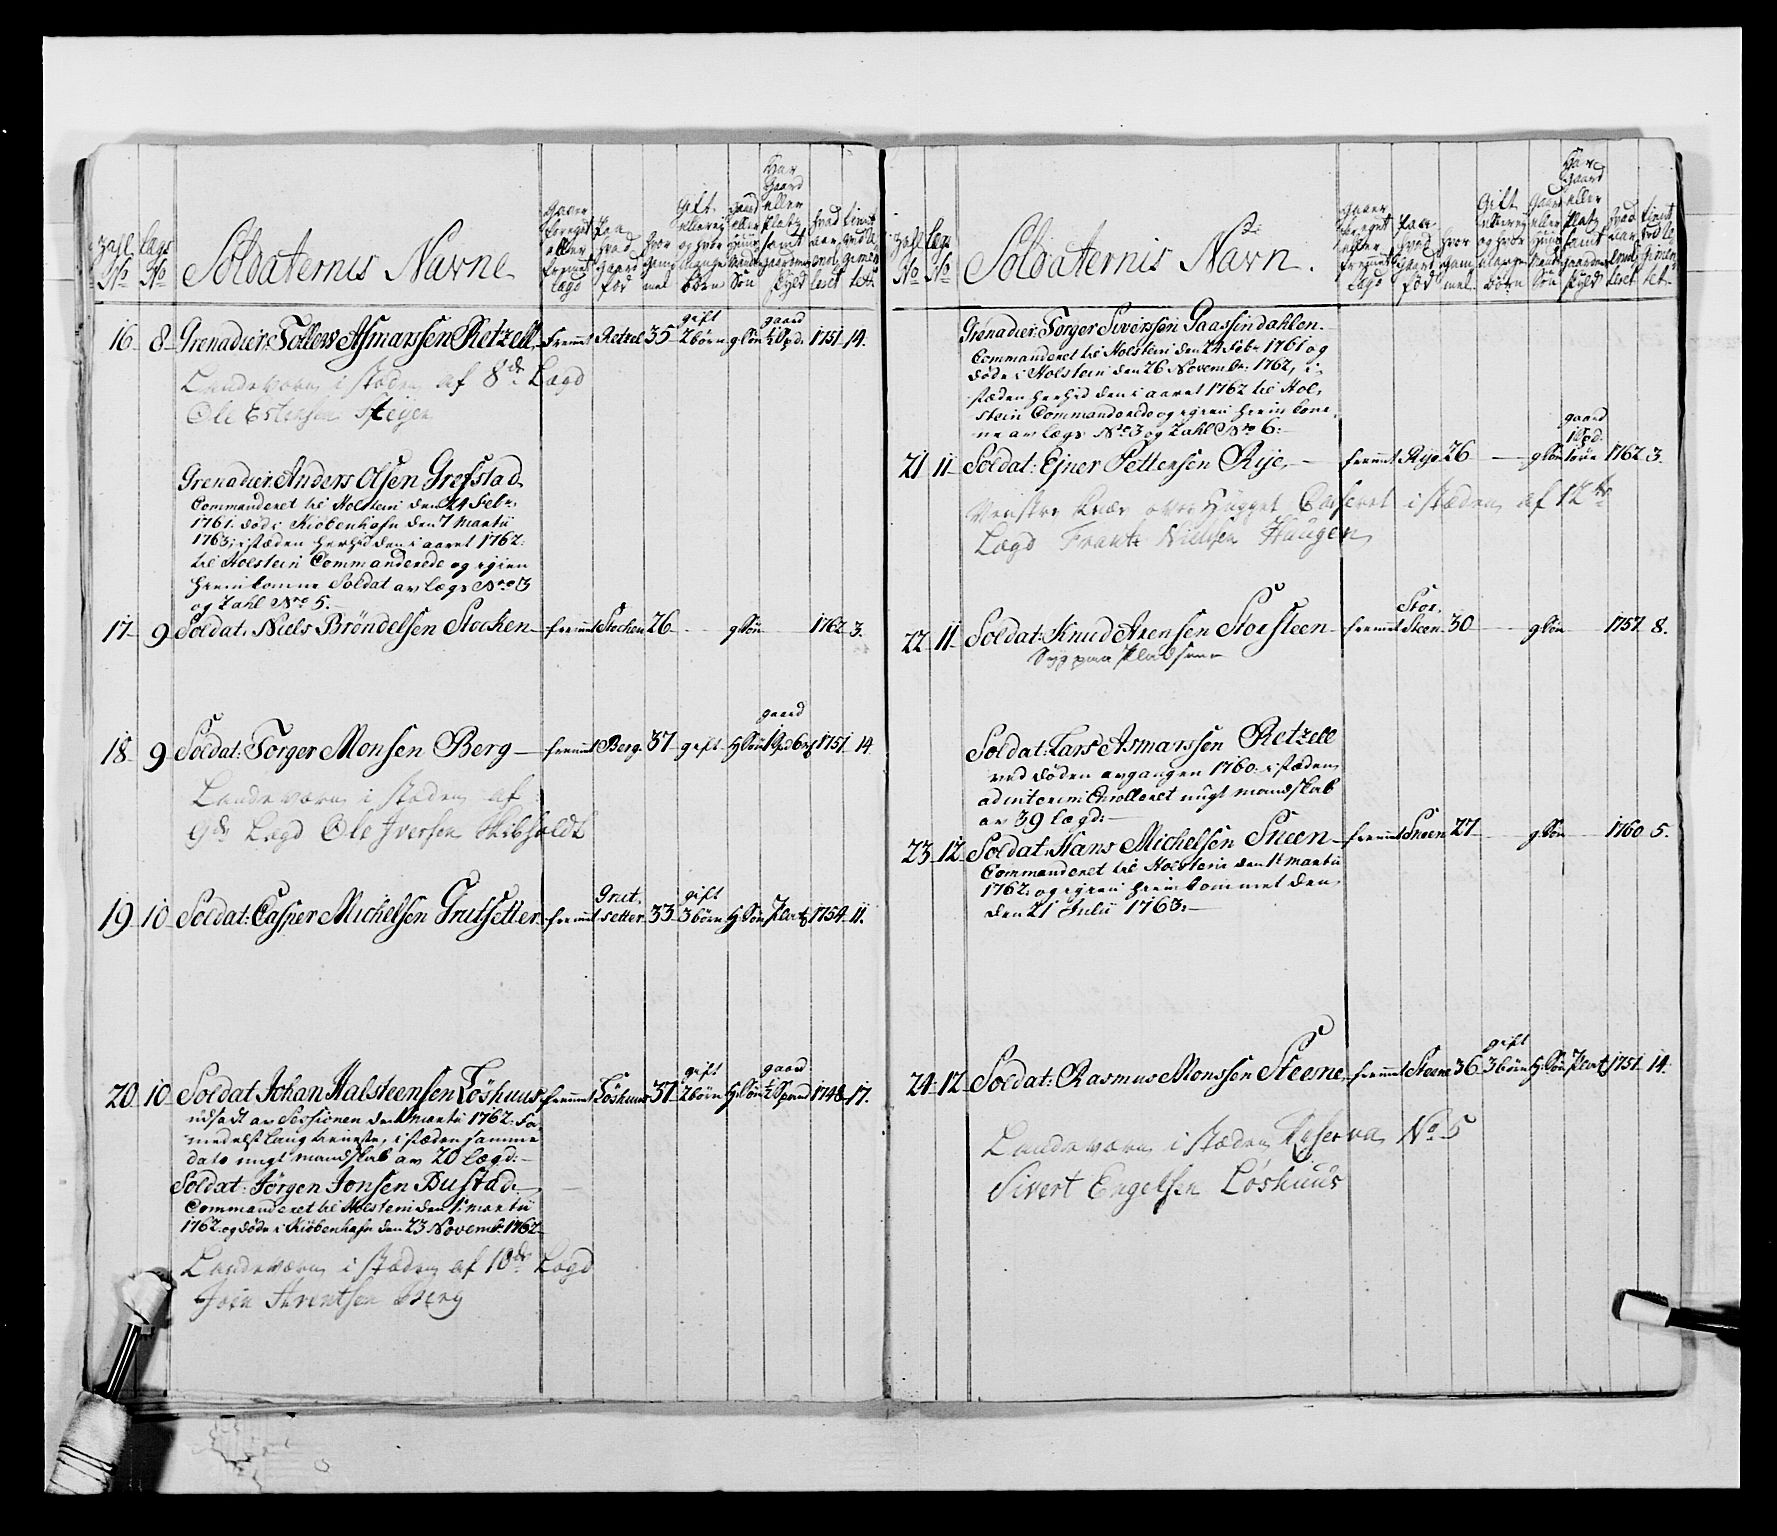 Zahl No
Lægs No
Soldaternis Navne
Gift
16 8 Grenadier: Tollew Asmarssen Retzell fremt Retzel 35 gift 2 børn gSøn gaard 1751 14.
Landeværn i stæden af 8de Lægd
Ole Estensen Steyen
Grenadier: Anders Olsen Grefstad
Commanderet til Holstein den 24 Febr:
1761. død i Kiöbenhafn den 7 Martii
1763; i stæden herhid den i aaret 1762:
til Holstein Commanderede og igien
hiemkomne Soldat av lægs Nro 3
og Zahl Nro 5.
17 9 Soldat: Niels Bröndelsen Stocken fremt Stocken 26 gSøn 1762 3.
18 9 Soldat: Torger Monsen Berg fremt Berg 37 gift HSøn gaard 1751 14
Landeværn i stæden af
9de Lægd Ole Iversen
19 10 Soldat: Casper Michelsen Grutsetter fremt Grutsetter 33 gift 3 børn HSøn Platz 1754 11.
20 10 Soldat Johan Halsteensen Löshuus fremt Löshuus 37 gift 2 børn HSøn gaard 1748 17.
udsadt av Sessionen den 1 Martii 1762. for
medelst lang tieneste, i stæden samme
dato ungt mandskab av 20 lægd:
Soldat: Jörgen Jonsen Bustad
Commanderet til Holstein den 1t Martii
1762. og døde i Kiöbenhafn den 23 Novemb: 1762
Landeværn i stæden af 10de Lægd
Joen Arentsen Berg
Zahl No
Lægs No
Soldaternis Navn.
Gift
Grenadier: Torger Siverssen Gaassindahlen
Commanderet til Holstein den 24 Febr: 1761 og
døde i Holstein den 26 Novembr: 1762, i
stæden herhid den i aaret 1762 til Hol-
stein Commanderede og igien hiemkom-
ne av lægs No 3 og Zahl No 6:
21 11 Soldat: Ejner Pettersen Rije fremt Rije 26 gSøn gaard 1762 3.
Venstre Knæ over Hugget Casseret i stæden af 12te
Lægd Frantz Nielsen Haugen
22 11 Soldat: Knud Arensen Storsteen fremt Stor-Steen 30 gSøn 1757 8.
Syg paa
Soldat: Lars Asmarssen Retzell
ved døden avgangen 1760. i stæden
ad interim Enrolleret ungt mandskab
av 39 lægd:
23 12 Soldat: Hans Michelsen Sneen fremt Sneen 27 gSøn 1760 5.
Commanderet til Holstein den 1t Martii
1762. og igien hiemkommet den
den 21 Julii 1763.
24 12 Soldat: Rasmus Monssen Steene fremt Steene 36 gift 3 børn HSøn Platz 1751 14.
Landeværn i stæden Reserva No 5
Sivert Engelsen Löshuus